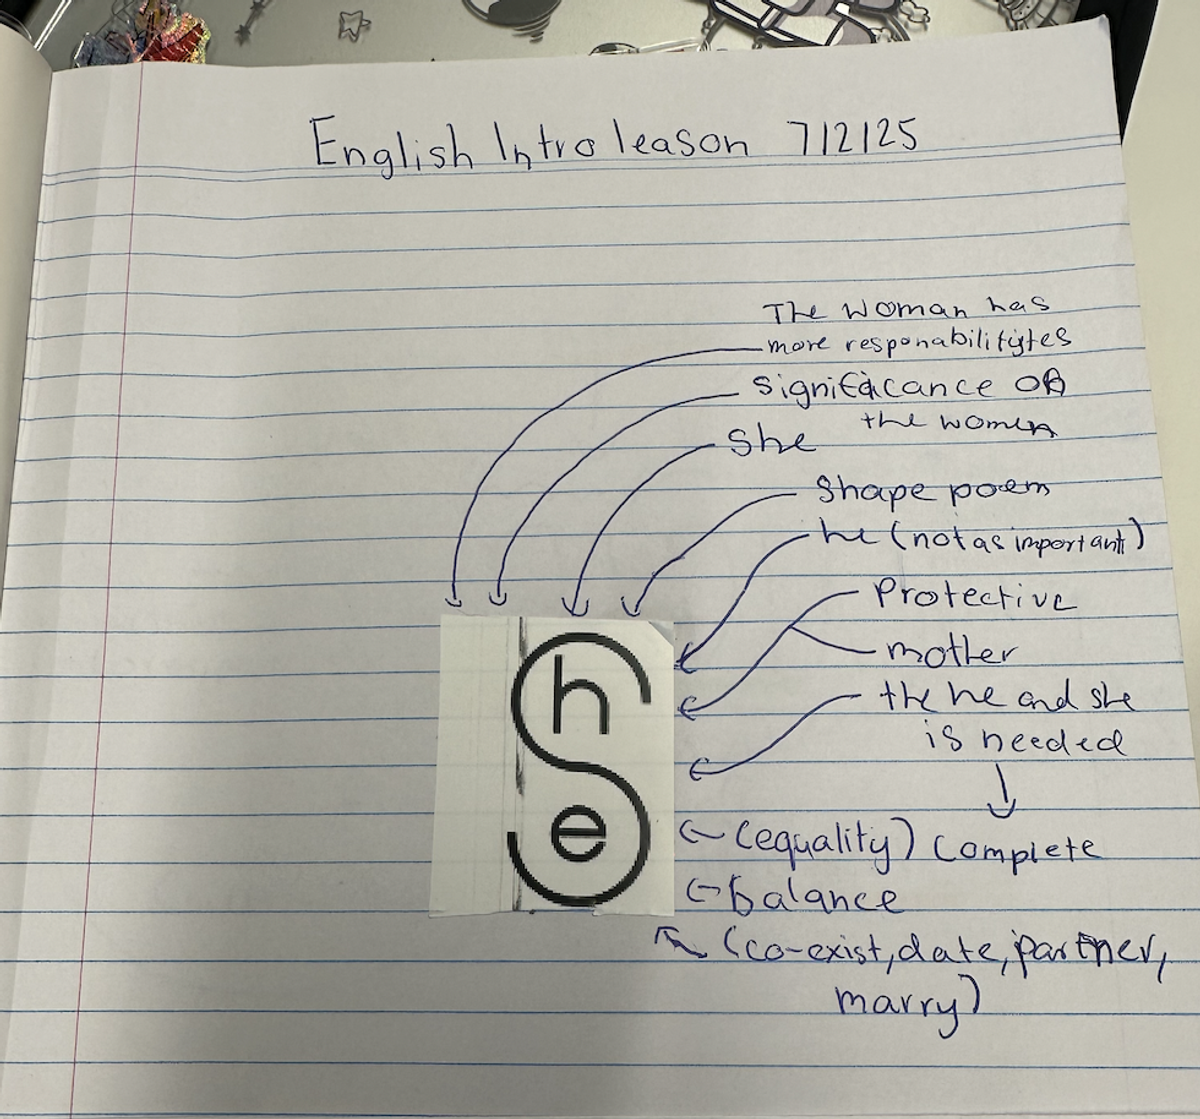 English Intro leason 7/2/25
The woman has
more responabilitytes
significance of
the women
She
Shape poem
he (not as important)
Protective
mother
the he and she
is needed
h
e
(equality) Complete
balance
(co-exist, date, partner,
marry)